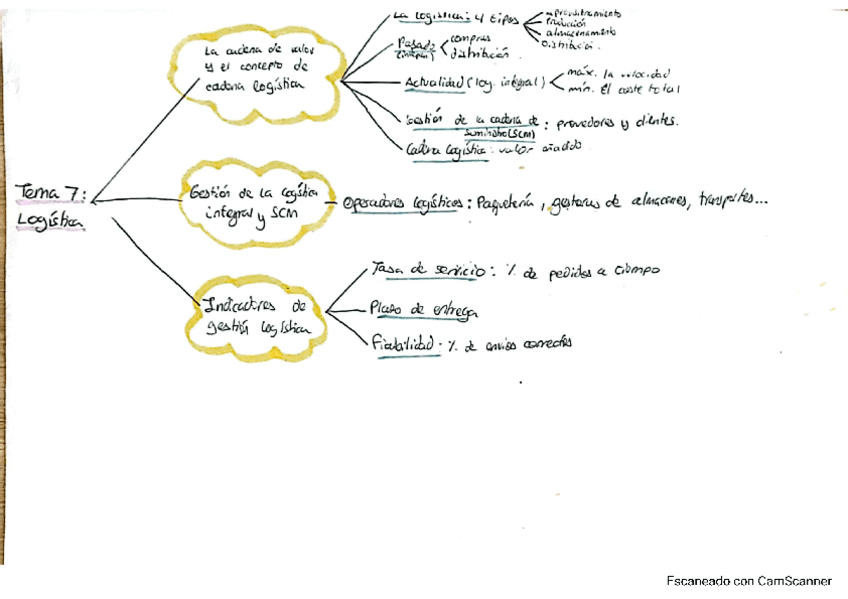 La logística: 4 tipos
aprovisionamiento
Producción
almacenamiento
Distribución.
La cadena de valor
y el concepto de
cadena logística
Pasado
compras
distribución.
Actualidad (log. integral)
máx. la velocidad
mín. El coste total
Gestión de la cadena de
suministro (SCM)
: provedores y clientes.
Cadena logística: valor añadido.
Tema 7:
Logística
Gestión de la logística
integral y SCM
Operadores logísticos: Paquetería, gestores de almacenes, transportes...
Indicadores de
gestión logística
Tasa de servicio: % de pedidos a tiempo
Plazo de entrega
Fiabilidad: % de envios correctos
Escaneado con CamScanner